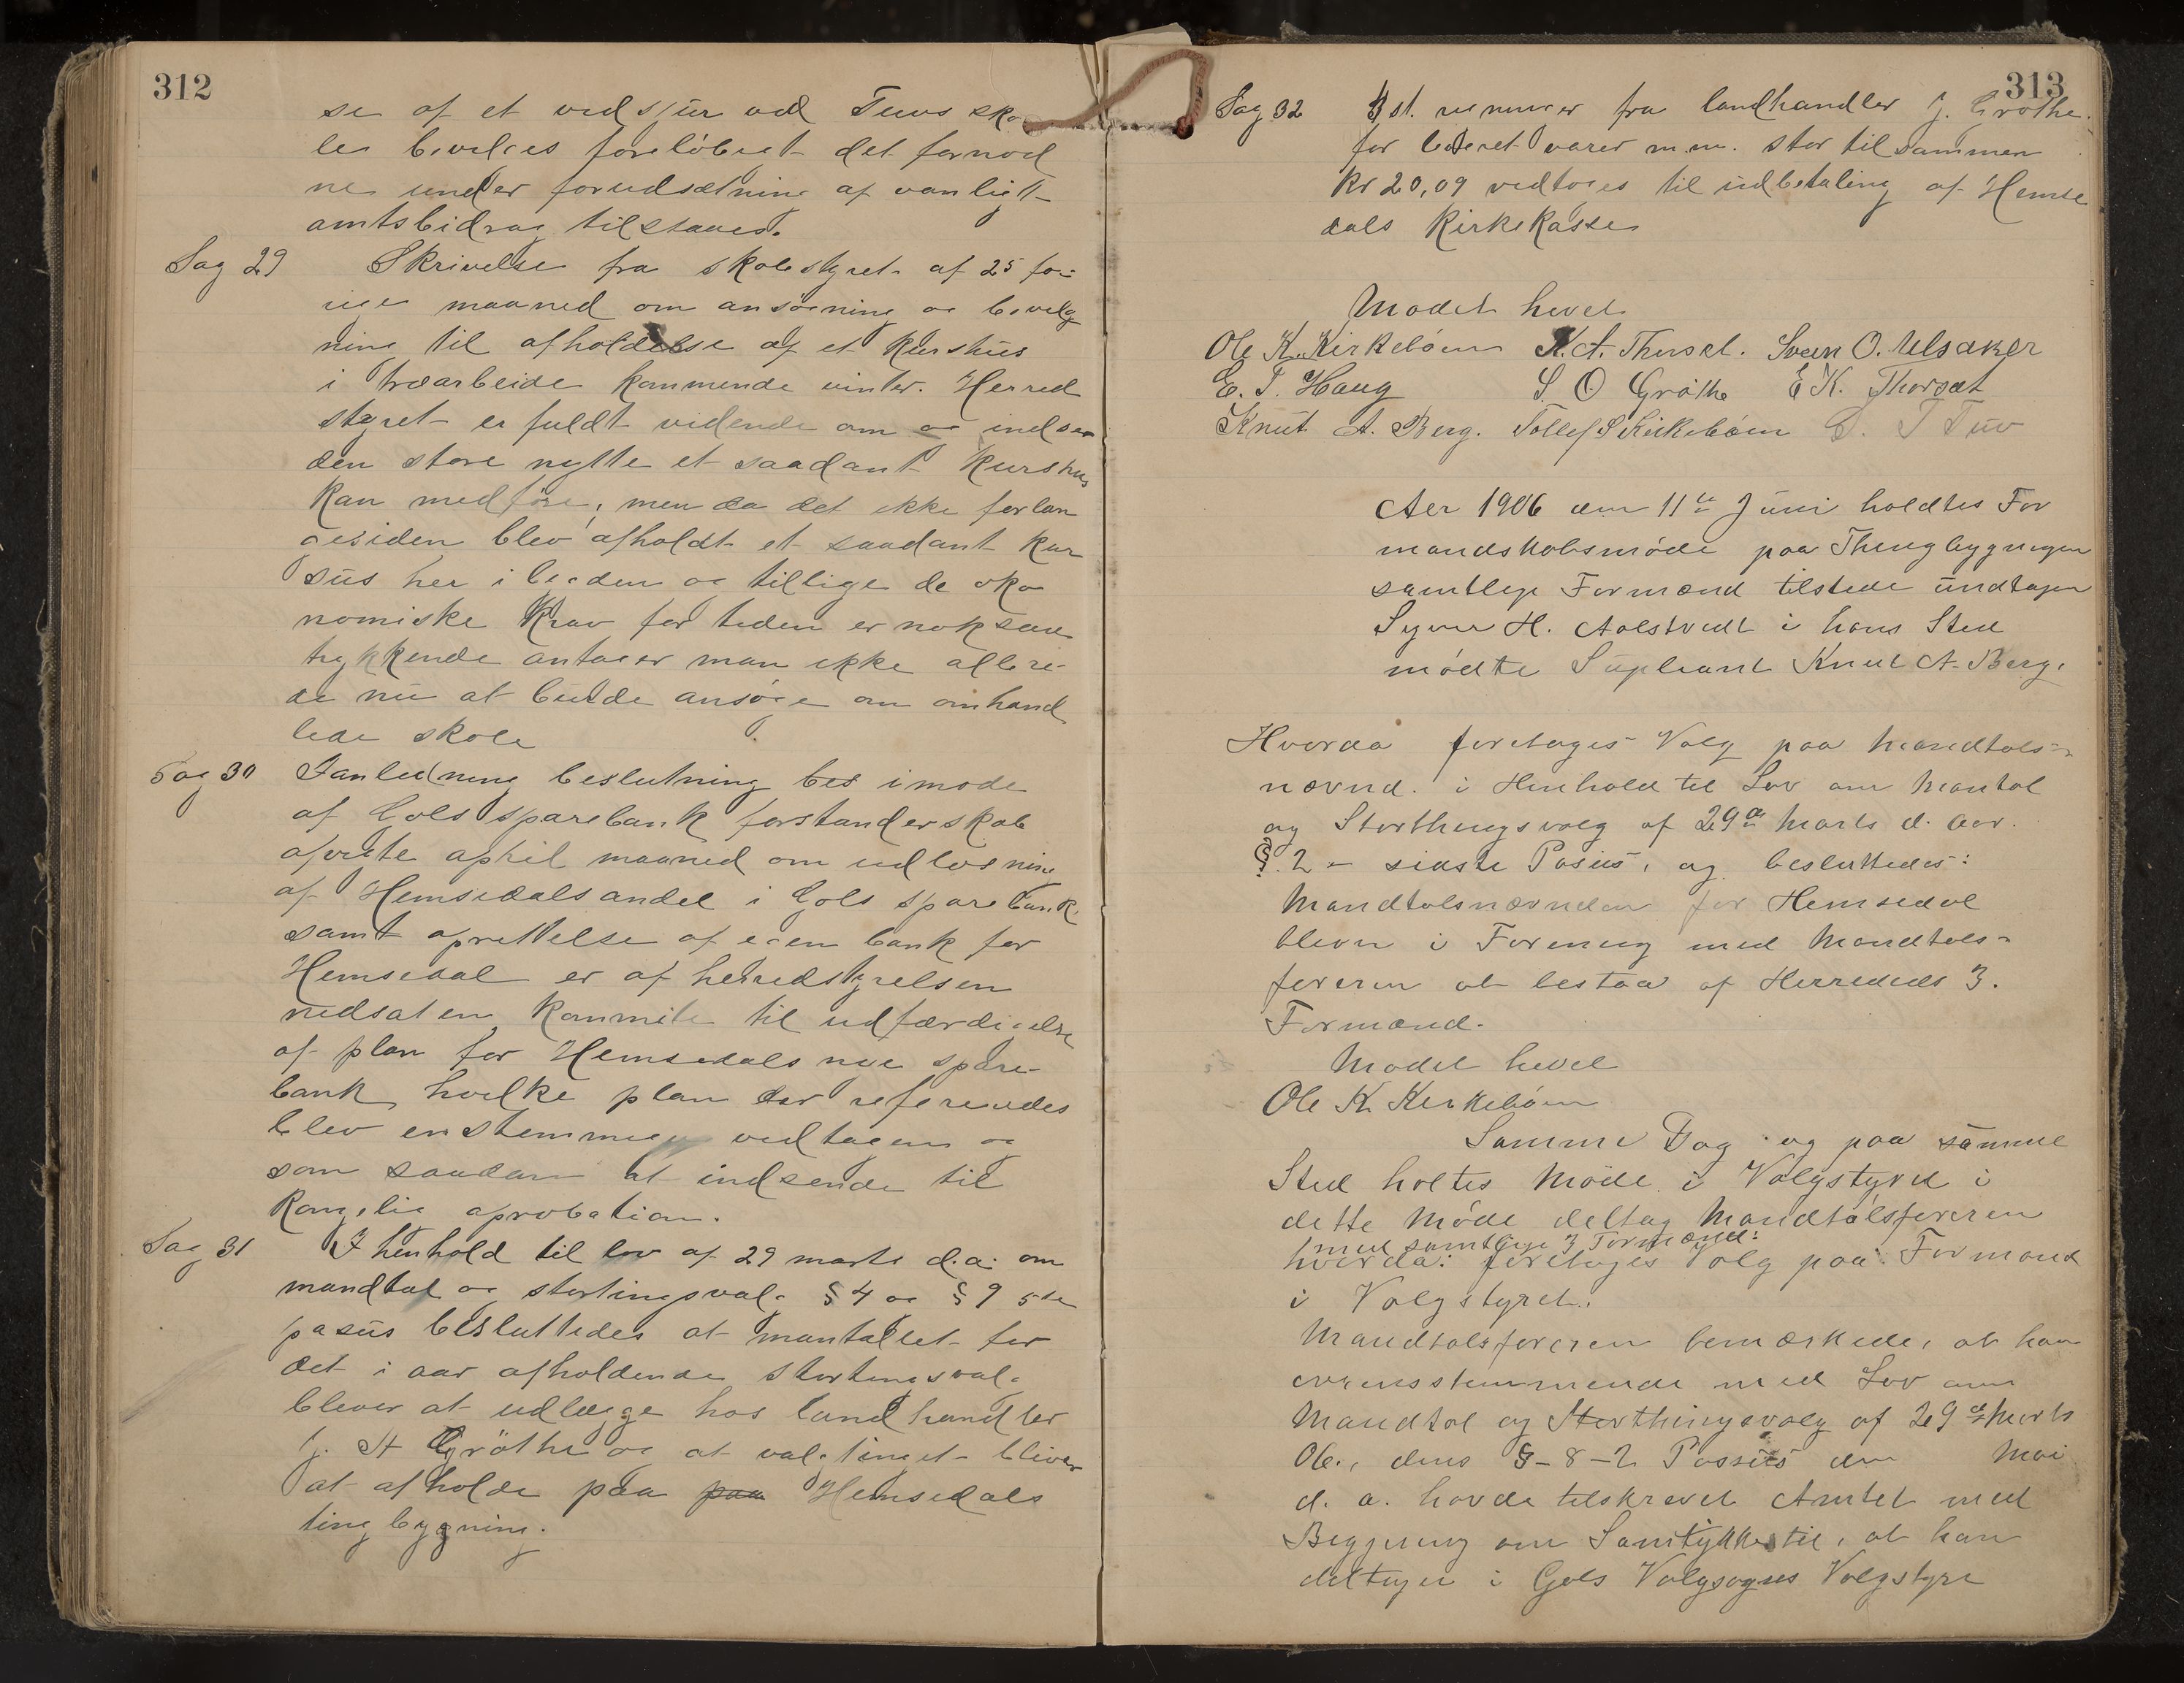 312
se af et vedsjur ved Tuvs sko
le bevilges foreløbet det fornød
ne under forudsætning af vanligt
amtsbidrag tilstaaes.
Sag 29 Skrivelse fra skolestyret af 25 for
rige maaned om ansøgning og bevilg
ning til afholdelse af et kurshus
i træarbeide kommende vinter. Herred
styret er fuldt vidende om og indser
den store nytte et saadant kurshus
kan medføre, men da det ikke forlan
gesiden blev afholdt et saadant kur
sus her i bygden og tillige de øko
nomiske krav for tiden er noksaa
trykkende antager man ikke allere-
de nu at burde ansøge om omhand
lede skole
Sag 30 I anledning beslutning i møde
af Gols sparebank forstanderskab
april maaned om udløsning
af Hemsedals andel i Gols sparebank
samt oprettelse af egen bank for
Hemsedal er af herredstyrelsen
nedsat en kommite til udfærdigelse
af plan for Hemsedals nye spare-
bank, hvilke plan der refereredes
blev enstemmigen vedtagen og
som saadan at indsende til
kongelig aprobation.
Sag 31 I henhold til lov af 29 marts d.a. om
mandtal og stortingsvalg § 4 og § 9 5te
pasus besluttedes at mantallet for
det i aar afholdende stortingsvalg
bliver at udlægge hos landhandler
J. A Grøthe og at valgtinget bliver
at afholde paa paa Hemsedals
tingbygning.
313
Sag 32 3 st. regninger fra landhandler J. Grøthe
for leveret varer m.m. stor tilsammen
Kr 20,09 vedtoges til udbetaling af Hemse
dals Kirkekasse
Mødet hevet
Ole K. Kirkebøen K. A. Thorset. Svein O. Ulsaker
E. T. Haug S. O Grøthe E K. Thorset
Knut A. Berg. Tollef S Kirkebøen G. T Tuv
Aar 1906 den 11te Juni holdtes For
mandskabsmøde paa Thingbygningen
samtlige Formænd tilstede undtagen
Syver H. Aalstvedt i hans Sted
mødte Supleant Knut A. Berg.
Hvorda foretoges Valg paa Mandtals-
nævnd. i Henhold til Lov om Mantal
og Storthingsvalg af 29de Marts d. Aar.
§ 2 - sidste Pasus, og besluttedes:
Mandtalsnævnden for Hemsedal
bliver i Forening med Mandtals-
føreren at bestaa af Herredets 3.
Formænd.
Mødet hevet
Ole K. Kirkebøen
Samme Dag og paa samme
Sted holtes Møde i Valgstyret i
dette Møde deltog Mandtalsføreren
med samtlige 3 Formænd:
hvorda: foretoges Valg paa: Formand
i Valgstyret.
Mandtalsføreren bemærkede, at han
overensstemmende med Lov om
Mandtal og Storthingsvalg af 29de Marts
06., dens §-8-2 Passus den Mai
d. a. havde tilskrevet Amtet med
Begjæring om Samtykke til, at han
deltager i Gols Valgsogns Valgstyre